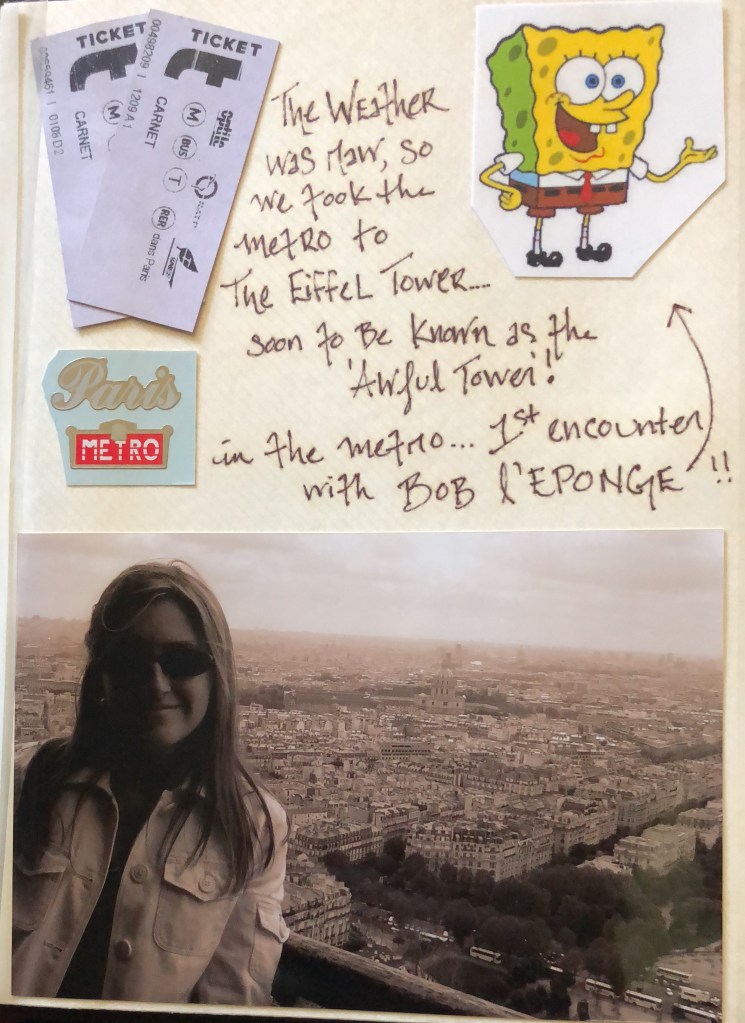 TICKET
t
M
CARNET
00498209 | 1209 A 1
TICKET
t
M
BUS
T
RER
dans Paris
CARNET
optile
RATP
SNCF
The Weather
was raw, so
we took the
metro to
The Eiffel Tower....
soon to Be Known as the
'Awful Tower'!
in the metro... 1st encounter
with BOB l'EPONGE !!
Paris
METRO